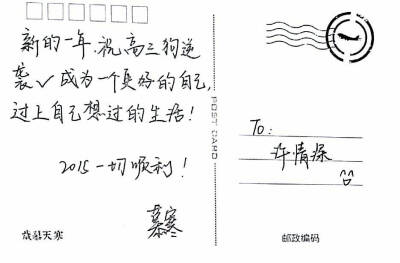 新的一年,祝高三狗逆
袭✓成为一个更好的自己,
过上自己想过的生活!
2015一切顺利!
慕寒
POST CARD
To:
许情深
邮政编码